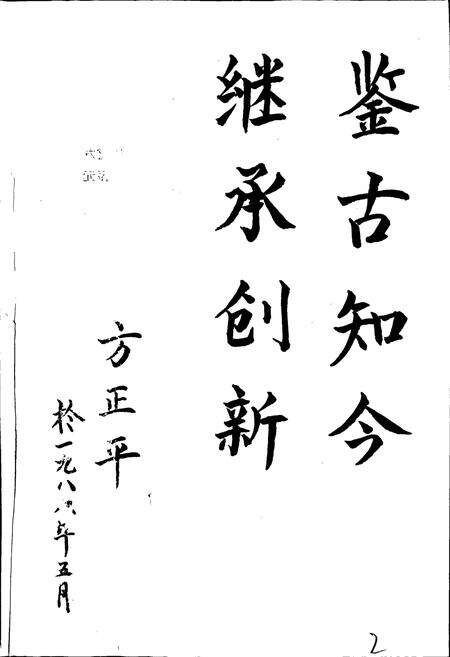 鉴古知今
继承创新
方正平
於一九八八年五月
2